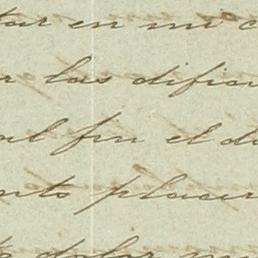 tar en mi c
r las dificu
al fin el do
nto placer
dolor mi